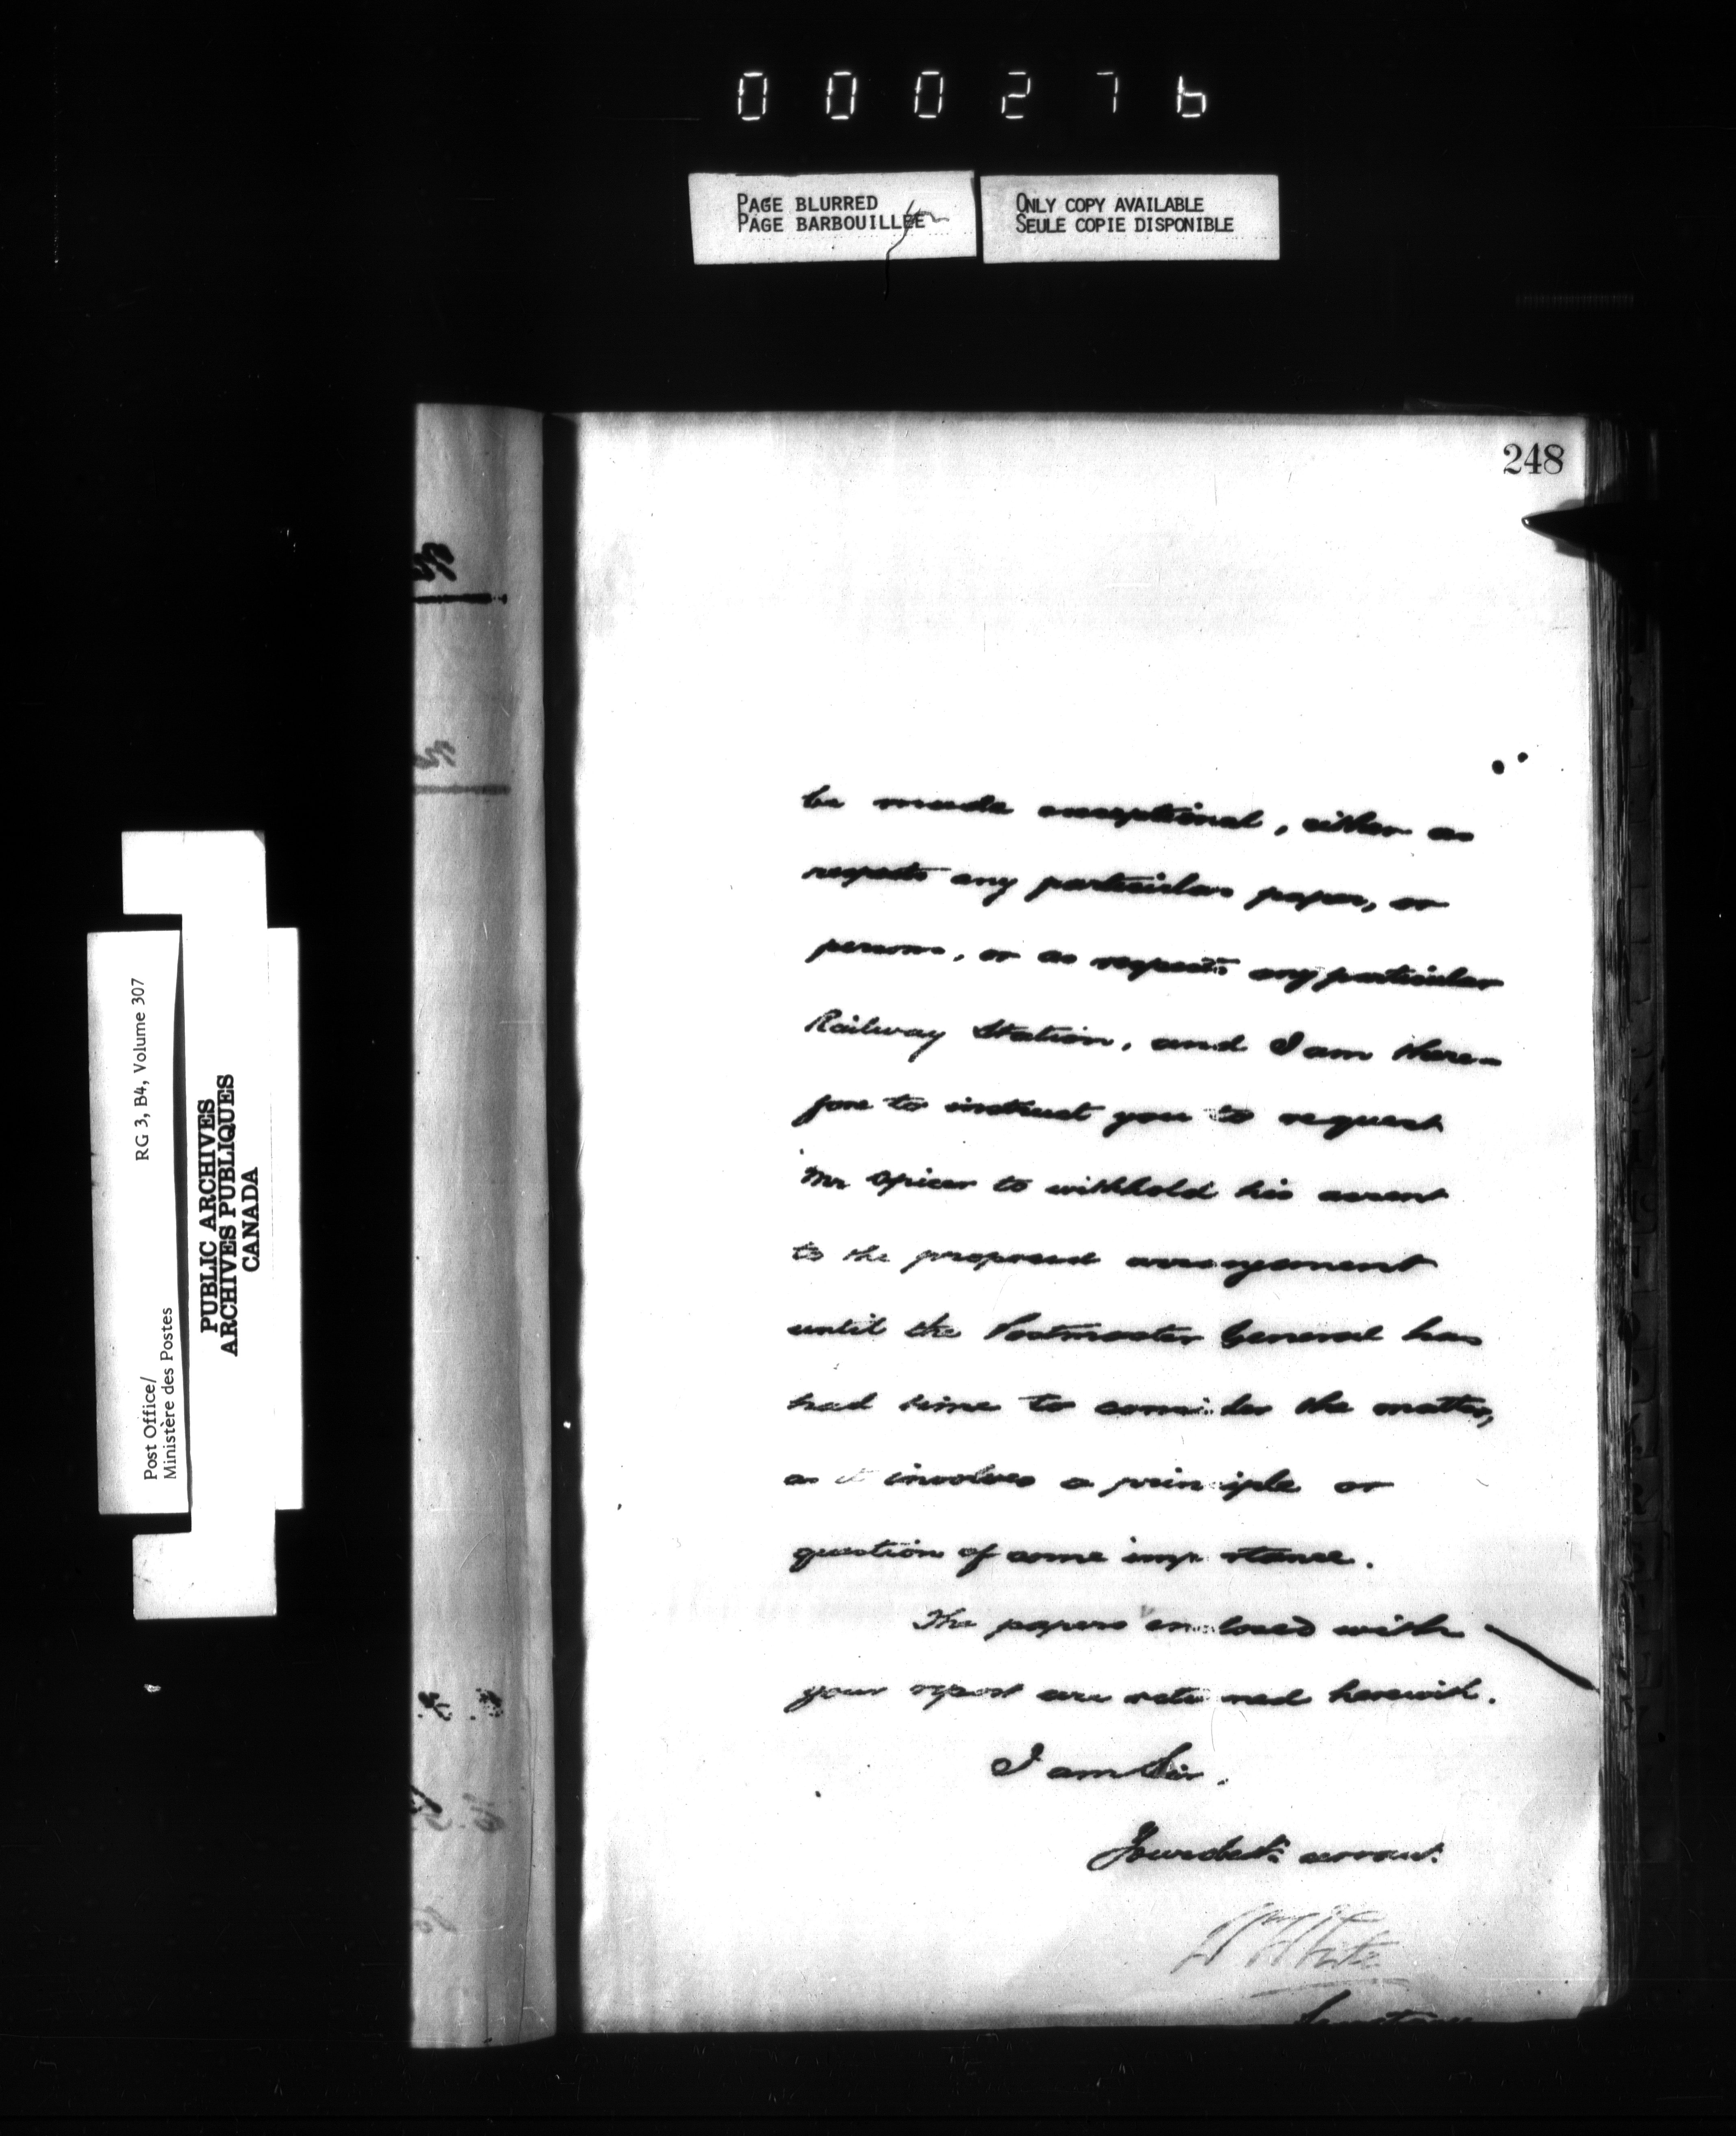 000276
PAGE BLURRED
PAGE BARBOUILLÉE
ONLY COPY AVAILABLE
SEULE COPIE DISPONIBLE
248
RG 3, B4, Volume 307
Post Office/
Ministère des Postes
PUBLIC ARCHIVES
ARCHIVES PUBLIQUES
CANADA
be made exceptional, either as
respects any particular paper, or
person, or as respects any particular
Railway Station, and I am there-
fore to instruct you to request
Mr Spicer to withhold his assent
to the proposed arrangement
until the Postmaster General has
had time to consider the matter,
as it involves a principle or
question of some importance.
The papers enclosed with
your report are returned herewith.
I am Sir,
Your obdt. servant.
White
Secretary